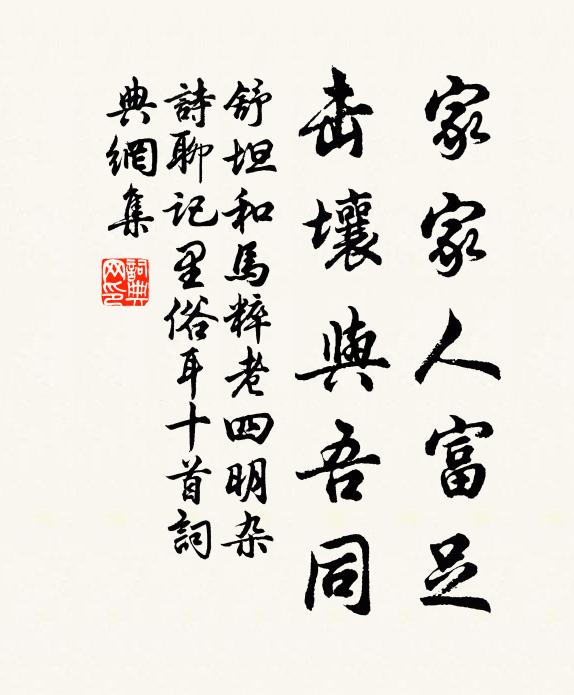 家家人富足
击壤與吾同
舒坦和馬粹老四明杂
詩聊記里俗耳十首詞
典網集
詞典网印